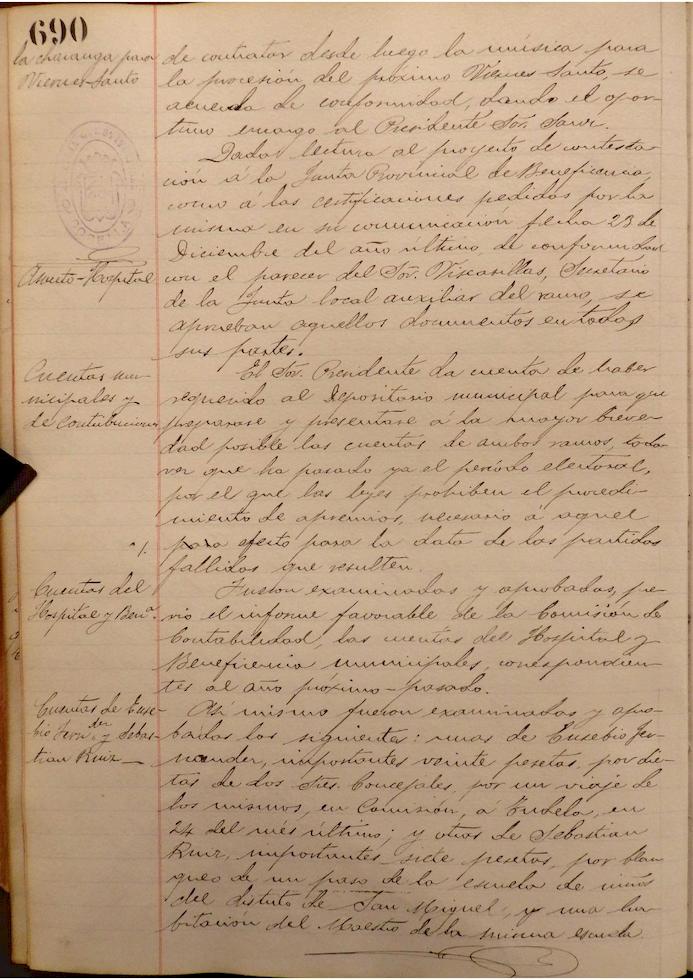 690
la charanga para
Viernes Santo
de contratar desde luego la música para
la procesión del próximo Viernes Santo, se
acuerda de conformidad, dando el opor-
tuno encargo al Presidente Sor. Sanz.
Dada lectura al proyecto de contesta-
ción á la Junta Provincial de Beneficencia,
como a las certificaciones pedidas por la
misma en su comunicación fecha 23 de
Diciembre del año último, de conformidad
Asunto-Hospital
con el parecer del Sor. Viscasillas, Secretario
de la Junta local auxiliar del ramo, se
aprueban aquellos documentos en todas
sus partes.
Cuentas mu-
nicipales y
de contribucion
El Sor. Presidente da cuenta de haber
requerido al Depositario municipal para que
preparase y presentase á la mayor breve-
dad posible las cuentas de ambos ramos, toda
vez que ha pasado ya el período electoral,
por el que las leyes prohiben el procedi-
miento de apremios, necesario á aquel
para efecto para la data de las partidas
fallidas que resulten.
Cuentas del
Hospital y Bena.
Fueron examinadas y aprobadas, pre-
vio el informe favorable de la Comisión de
Contabilidad, las cuentas del Hospital y
Beneficencia municipales, correspondien-
tes al año próximo-pasado.
Cuentas de Euse-
bio Fernder y Sebas-
tian Ruiz
Asi mismo fueron examinadas y apro-
badas las siguientes: unas de Eusebio Fer-
nandez, importantes veinte pesetas, por die-
tas de dos Sres. Concejales, por un viaje de
los mismos, en Comisión, á Tudela, en
24 del més último; y otras de Sebastian
Ruiz, importantes siete pesetas, por blan
queo de un paso de la escuela de niños
del distrito de San Miguel, y una ha-
bitación del Maestro de la misma escuela